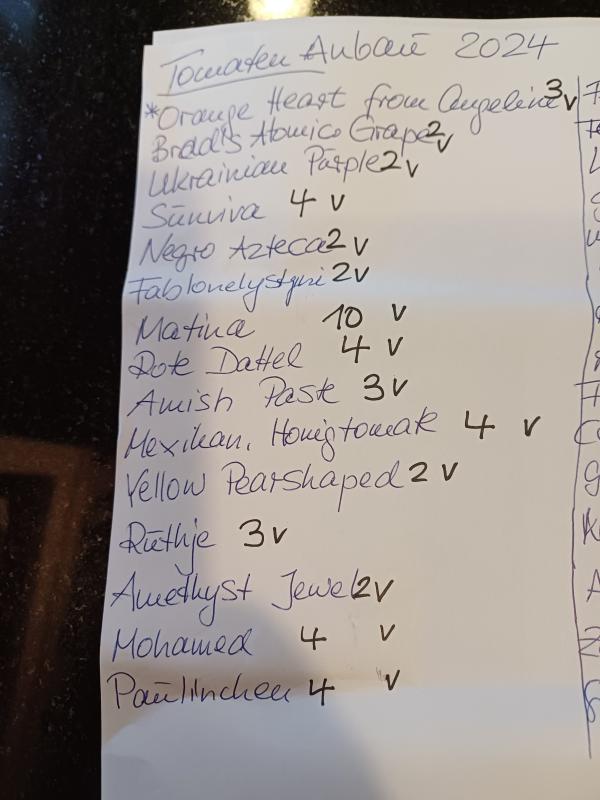 Tomaten Anbau 2024
*Orange Heart from Angelina 3 v
Brad's Atomico Grape 2 v
Ukrainian Purple 2 v
Sunviva 4 v
Negro Azteca 2 v
Jablonelystyni 2 v
Matina 10 v
Rote Dattel 4 v
Amish Paste 3 v
Mexikan. Honigtomate 4 v
Yellow Pearshaped 2 v
Ruthje 3 v
Amethyst Jewel 2 v
Mohamed 4 v
Paulinchen 4 v